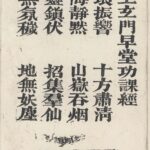 上玄門早堂功課經
琅振響 十方肅清
海靜默 山嶽吞烟
靈鎮伏 招集羣仙
無氛穢 地無妖塵